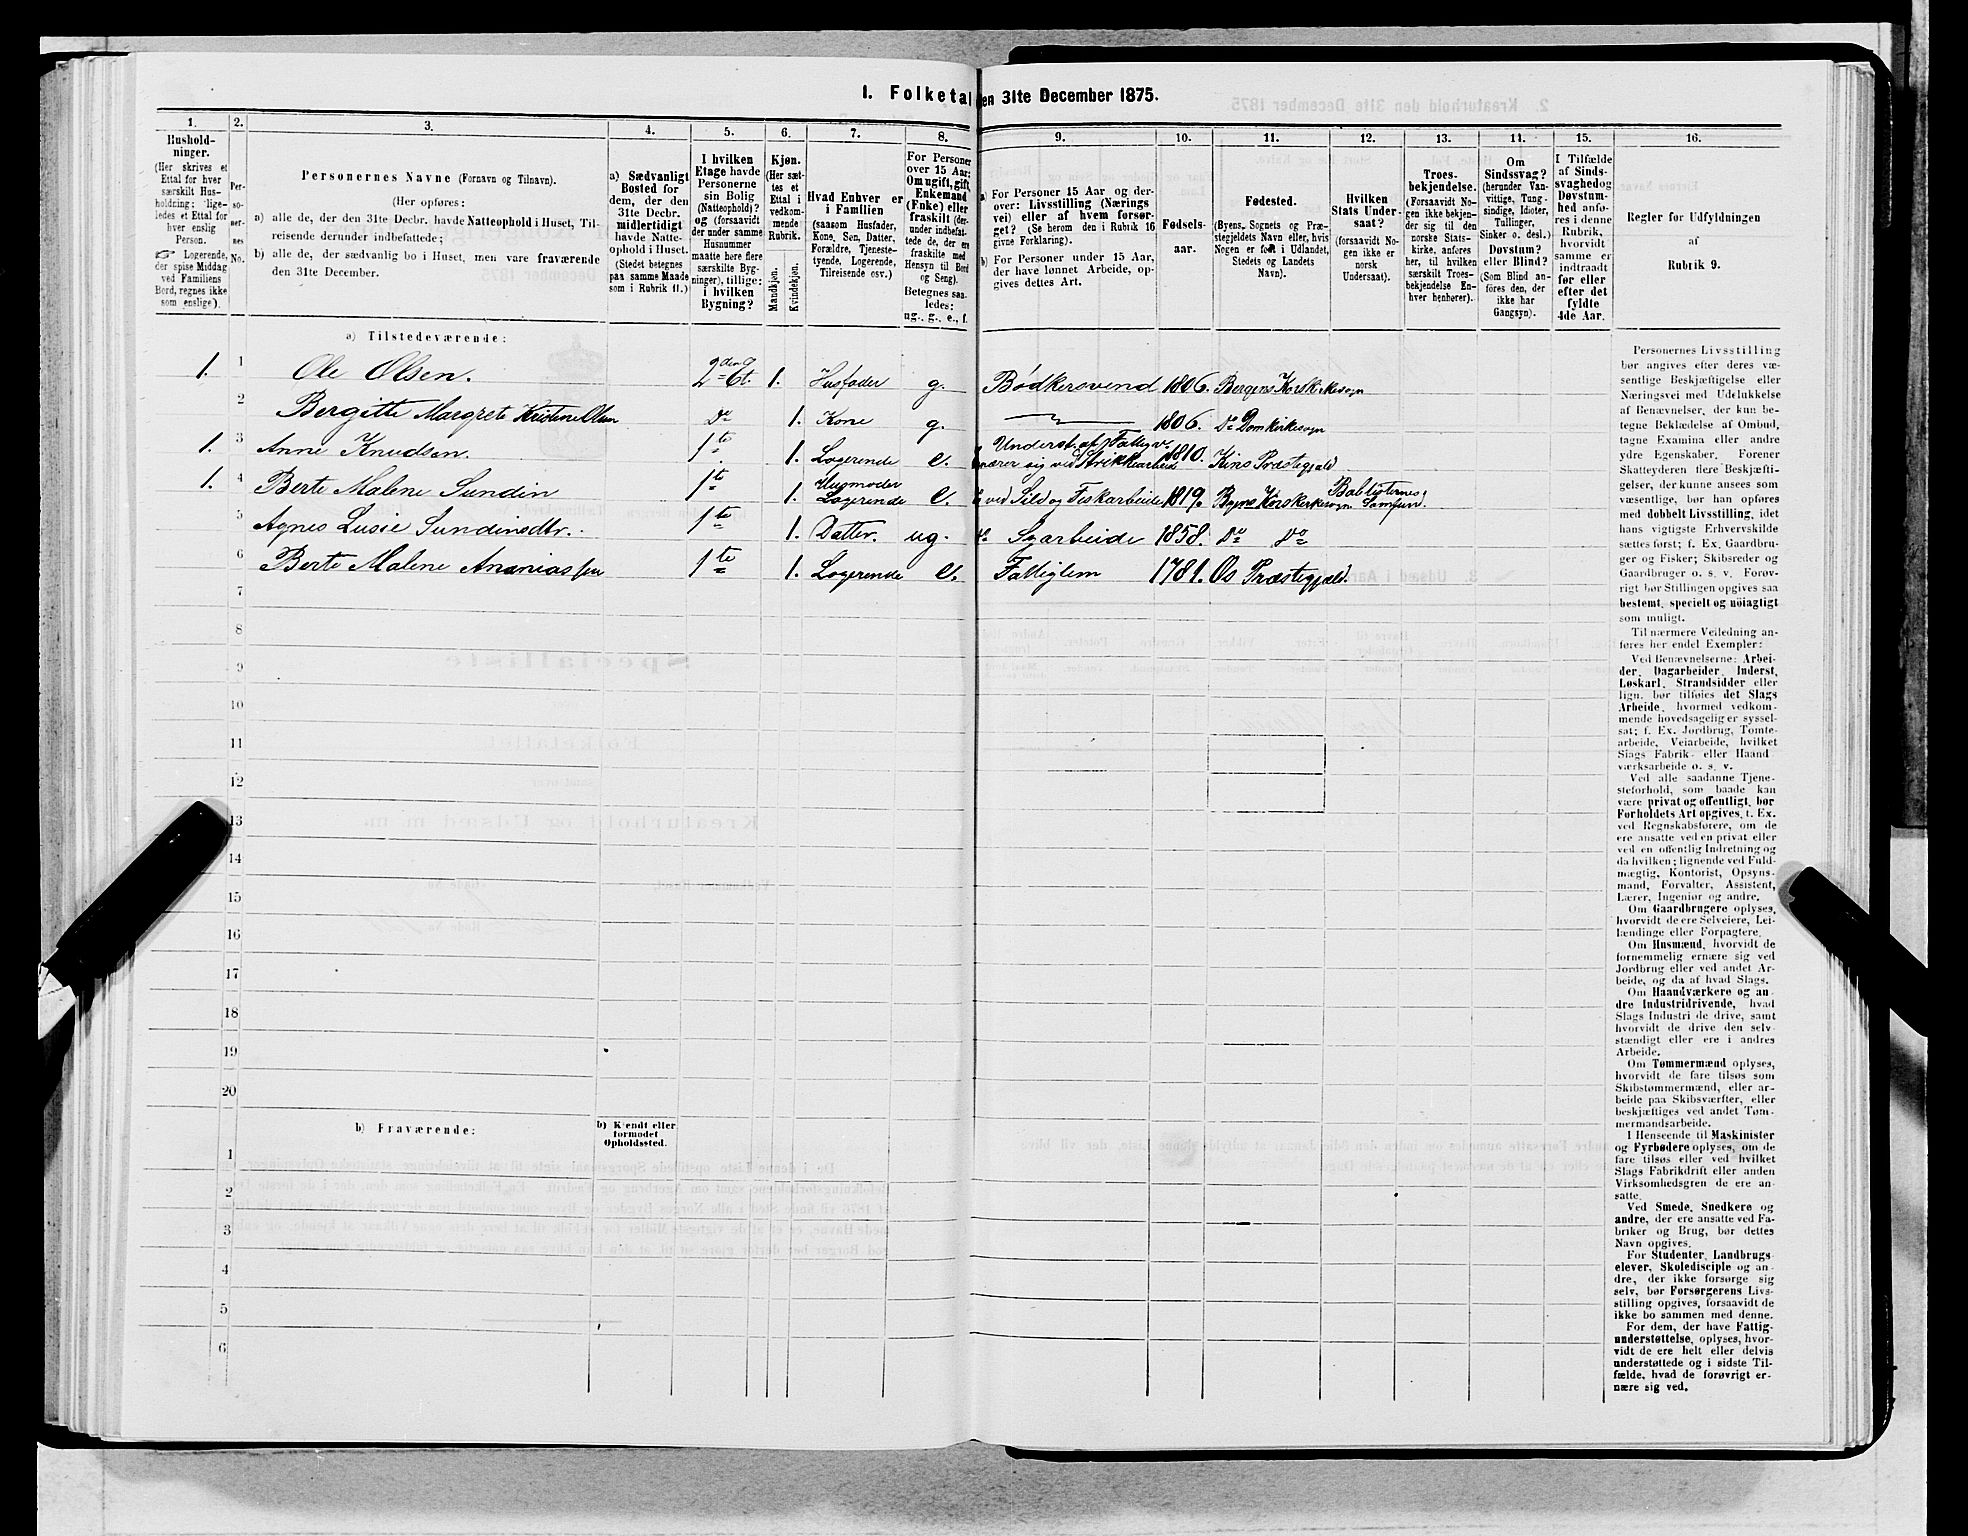 I. Folketal den 31te December 1875.
1. 2. 3. 4. 5. 6. 7. 8. 9. 10. 11. 12. 13. 14. 15. 16.
Hushold-
ninger.
(Her skrives et
Ettal for hver
særskilt Hus-
holdning; lige-
ledes et Ettal for
hver enslig
Person.
Logerende,
der spise Middag
ved Familiens
Bord, regnes ikke
som enslige).
Per-
so-
ner-
nes
No.
Personernes Navne (Fornavn og Tilnavn).
(Her opføres:
a) alle de, der den 31te Decbr. havde Natteophold i Huset, Til-
reisende derunder indbefattede;
b) alle de, der sædvanlig bo i Huset, men vare fraværende
den 31te December.
a) Sædvanligt
Bosted for
dem, der den
31te Decbr.
midlertidigt
havde Natte-
ophold i Huset.
(Stedet betegnes
paa samme Maade
som i Rubrik 11.)
I hvilken
Etage havde
Personerne
sin Bolig
(Natteophold)?
og (forsaavidt
der under samme
Husnummer
maatte høre flere
særskilte Byg-
ninger), tillige:
i hvilken
Bygning?
Kjøn.
(Her sæt-
tes et
Ettal i
vedkom-
mende
Rubrik.
Mandkjøn.
Kvindekjøn.
Hvad Enhver er
i Familien
(saasom Husfader,
Kone, Søn, Datter,
Forældre, Tjeneste-
tyende, Logerende,
Tilreisende osv.)
For Personer
over 15 Aar:
Om ugift, gift,
Enkemand
(Enke) eller
fraskilt (der-
under indbefat-
tede de, der ere
fraskilte med
Hensyn til Bord
og Seng).
Betegnes saa-
ledes:
ug., g., e., f.
a) For Personer 15 Aar og der-
over: Livsstilling (Nærings
vei) eller af hvem forsør-
get? (Se herom den i Rubrik 16
givne Forklaring).
b) For Personer under 15 Aar,
der have lønnet Arbeide, op-
gives dettes Art.
Fødsels-
aar.
Fødested.
(Byens, Sognets og Præ-
stegjeldets Navn eller, hvis
Nogen er født i Udlandet,
Stedets og Landets
Navn).
Hvilken
Stats Under-
saat?
(forsaavidt No-
gen ikke er
norsk
Undersaat).
Troes-
bekjendelse.
(Forsaavidt No-
gen ikke bekjen-
der sig til den
norske Stats-
kirke, anføres
her, til hvilken
særskilt Troes-
bekjendelse En-
hver henhører).
Om
Sindssvag?
(herunder Van-
vittige, Tung-
sindige, Idioter,
Tullinger,
Sinker o. desl.)
Døvstum?
eller Blind?
(Som Blind an-
føres den, der
ikke har
Gangsyn).
I Tilfælde
af Sinds-
svaghed og
Døvstum-
hed anfø-
res i denne
Rubrik,
hvorvidt
samme er
indtraadt
før eller
efter det
fyldte
4de Aar.
Regler for Udfyldningen
af
Rubrik 9.
a) Tilstedeværende:
1. 1 Ole Olsen. 2den Et. 1. Husfader g. Bødkersvend 1806. Bergens Korskirkesogn
2 Bergitte Margrete Kristine Olsen Do 1. Kone g. 1806. Do Domkirkesogn
1. 3 Anne Knudsen. 1te 1. Logerende e. Underst. af Fattigv. nærer sig ved Strikkearbeid 1810. Kins Præstegjæld
1. 4 Berte Malene Sundin 1te 1. Husmoder Logerende e. ved Sild og Fiskarbeide 1819. Bgns Korskirkesogn Babtisternes Samfun.
5 Agnes Lusie Sundinsdtr. 1te 1. Datter. ug. do Syarbeide 1858. Do Do
6 Berte Malene Ananiassen 1te 1. Logerende e. Fattiglem 1781. Os Præstegjæld.
7
8
9
10
11
12
13
14
15
16
17
18
19
20
b) Fraværende:
b) Kjendt eller
formodet
Opholdssted.
1
2
3
4
5
6
Personernes Livsstilling
bør angives efter deres væ-
sentlige Beskjæftigelse eller
Næringsvei med Udelukkelse
af Benævnelser, der kun be-
tegne Beklædelse af Ombud,
tagne Examina eller andre
ydre Egenskaber. Forener
Skatteyderen flere Beskjæfti-
gelser, der kunne ansees som
væsentlige, bør han opføres
med dobbelt Livsstilling, idet
hans vigtigste Erhvervskilde
sættes først; f. Ex. Gaardbru-
ger og Fisker; Skibsreder og
Gaardbruger o. s. v. Forøv-
rigt bør Stillingen opgives saa
bestemt, specielt og nöiagtigt
som muligt.
Til nærmere Veiledning an-
føres her endel Exempler:
Ved Benævnelserne: Arbei-
der, Dagarbeider, Inderst,
Løskarl, Strandsidder eller
lign. bør tilføies det Slags
Arbeide, hvormed vedkom-
mende hovedsagelig er syssel-
sat; f. Ex. Jordbrug, Tomte-
arbeide, Veiarbeide, hvilket
Slags Fabrik- eller Haand
værksarbeide o. s. v.
Ved alle saadanne Tjene-
steforhold, som baade kan
være privat og offentligt, bør
Forholdets Art opgives, t. Ex.
ved Regnskabsførere, om de
ere ansatte ved en privat eller
ved en offentlig Indretning og
da hvilken; lignende ved Fuld-
mægtig, Kontorist, Opsyns-
mand, Forvalter, Assistent,
Lærer, Ingeniør og andre.
Om Gaardbrugere oplyses,
hvorvidt de ere Selveiere, Lei-
lændinge eller Forpagtere.
Om Husmænd, hvorvidt de
fornemmelig ernære sig ved
Jordbrug eller ved andet Ar-
beide, og da af hvad Slags.
Om Haandværkere og an
dre Industridrivende, hvad
Slags Industri de drive, samt
hvorvidt de drive den selv-
stændigt eller ere i andres
Arbeide.
Om Tømmermænd oplyses,
hvorvidt de fare tilsøs som
Skibstømmermænd, eller ar-
beide paa Skibsværfter, eller
beskjæftiges ved andet Tøm-
mermandsarbeide.
I Henseende til Maskinister
og Fyrbødere oplyses, om de
fare tilsøs eller ved hvilket
Slags Fabrikdrift eller anden
Virksomhedsgren de ere an-
satte.
Ved Smede, Snedkere og
andre, der ere ansatte ved Fa-
briker og Brug, bør dettes
Navn opgives.
For Studenter, Landbrugs
elever, Skoledisciple og an-
dre, der ikke forsørge sig
selv, bør Forsørgerens Livs-
stilling opgives, forsaavidt de
ikke bo sammen med denne.
For dem, der have Fattig-
understøttelse, oplyses, hvor-
vidt de ere helt eller delvis
understøttede og i sidste Til-
fælde, hvad de forøvrigt er-
nære sig ved.